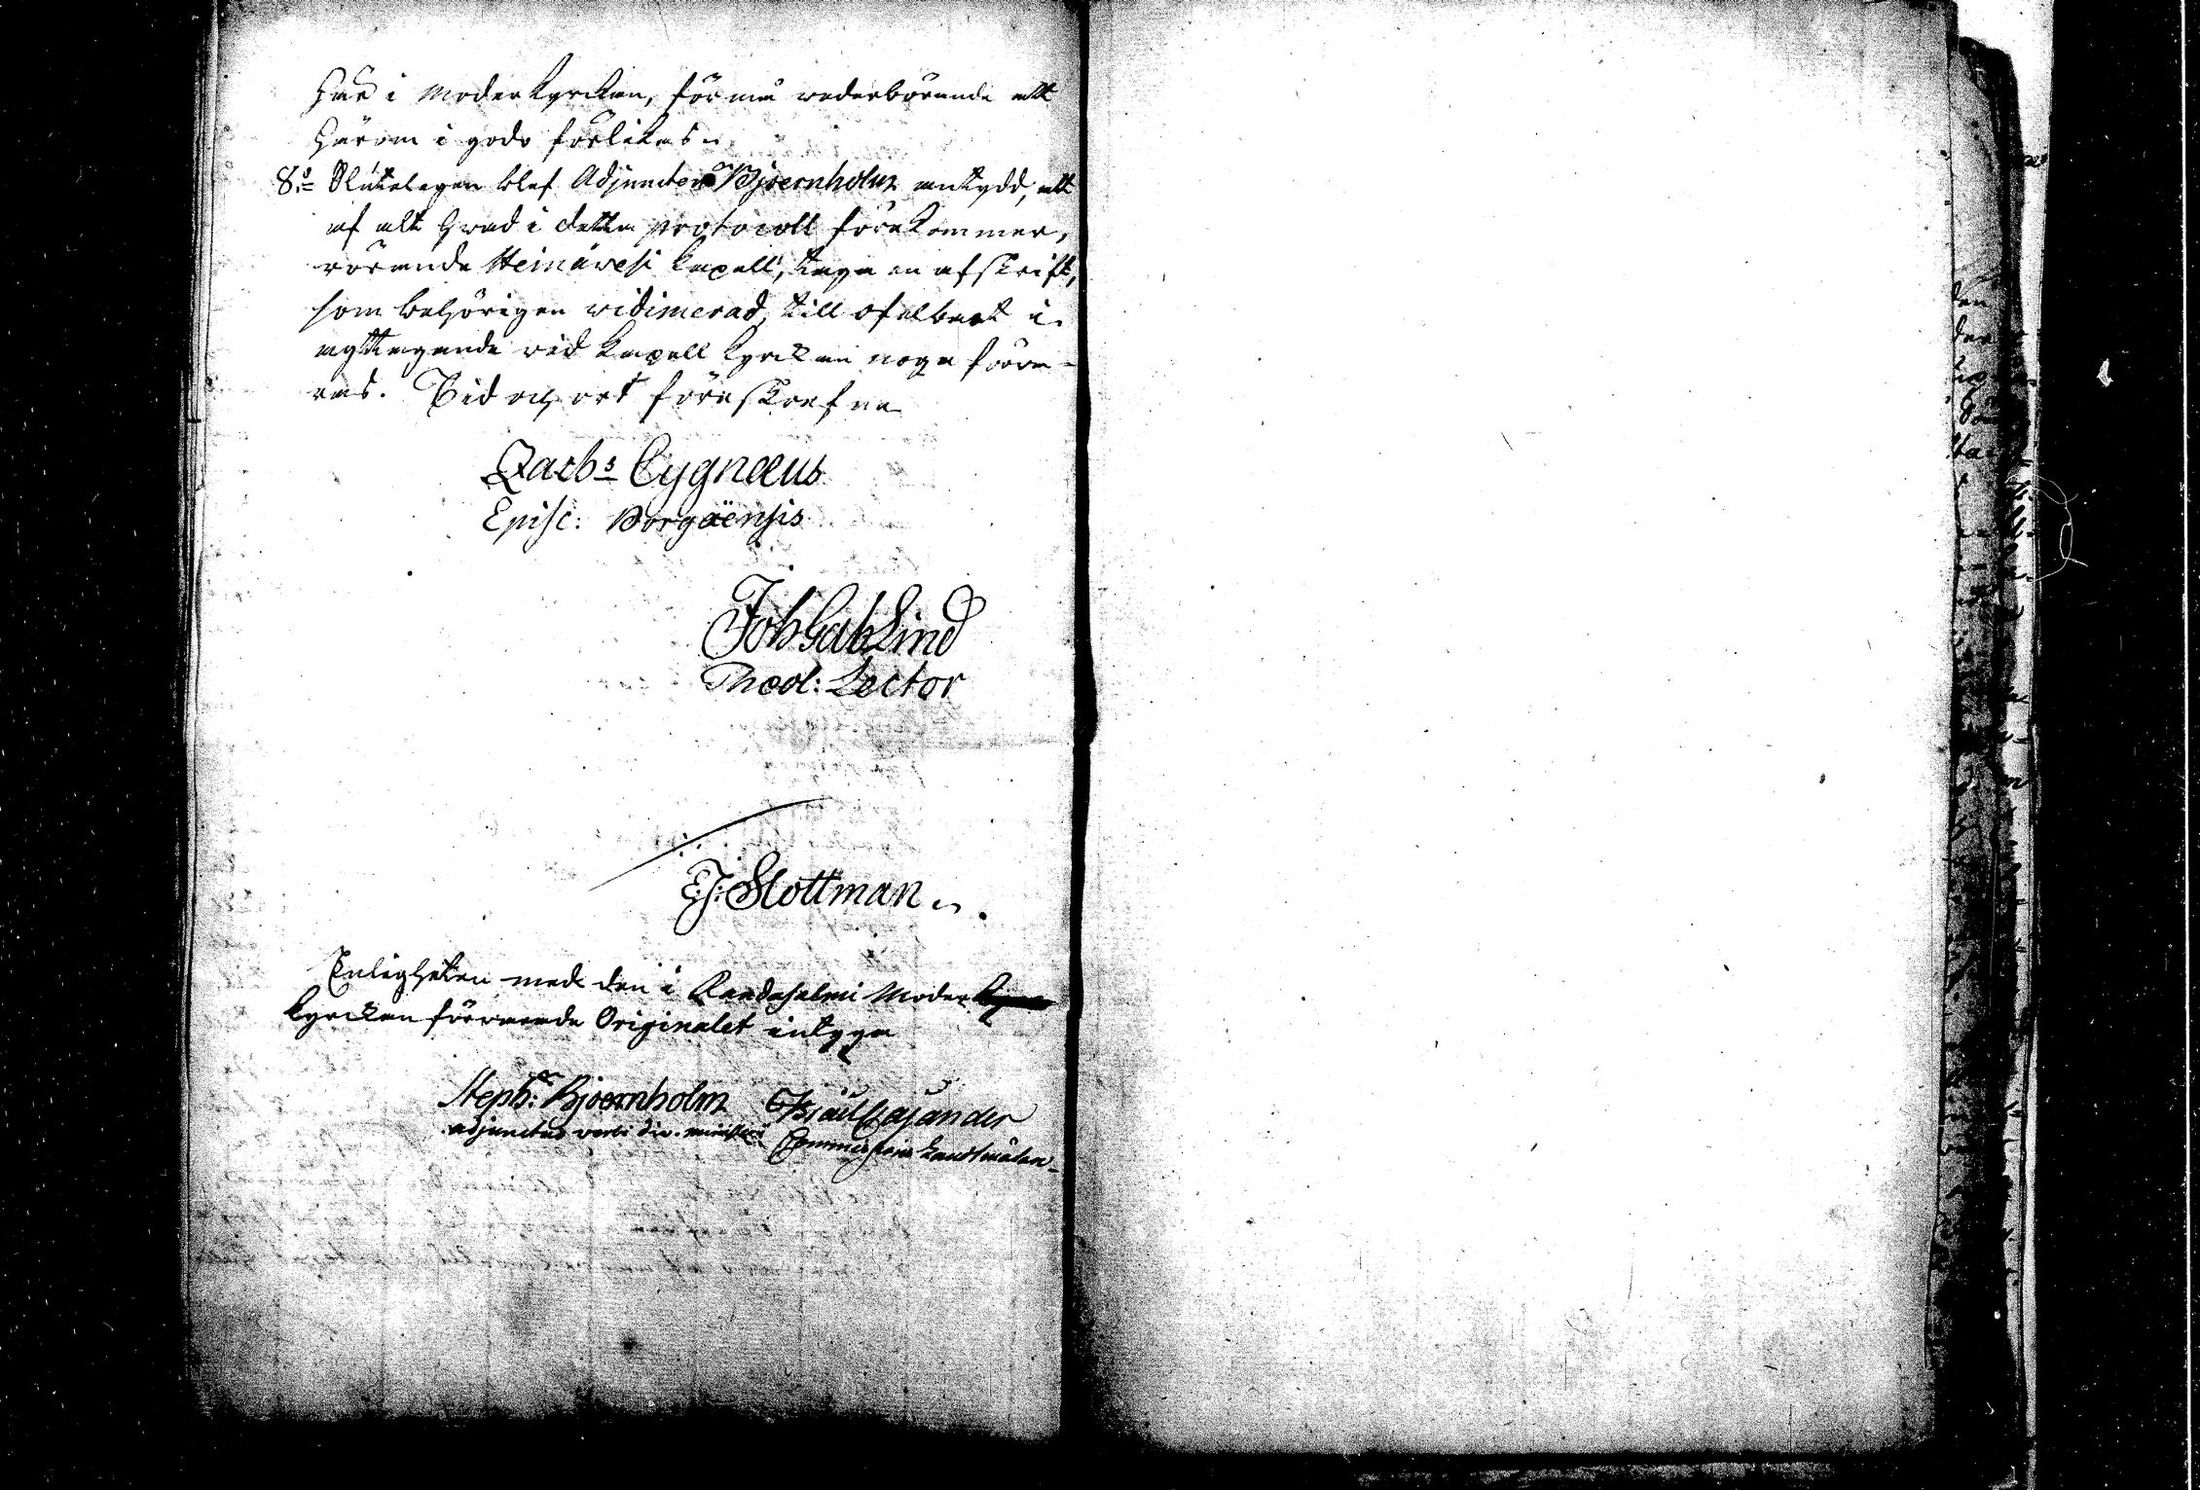 här i Moderkyrckan, förmå wederbörande att
härom i godo förlikas.
8:o Slutel​igen blef Adjuncten Bjoernholm antydd, att
af alt hvad i detta protocoll förekommer,
rörande Heinävesi Capell, taga en afskrift,
som behörigen vidimerad, till ofelbart i
agttagande vid Capell kyrckan noga förva-
ras. Tid och ort förskrefne
Zachs Cygnæus
Episc: Borgäensis
Joh Gab Lind
Theol: Lector
E. J. Slottman
Enligheten med den i Randasalmi Moder
kyrckan förvarade Originalet intyga
Steph: Bjoernholm Cajander
adjunctus verbi div. ministerii Commissions Landtmätare